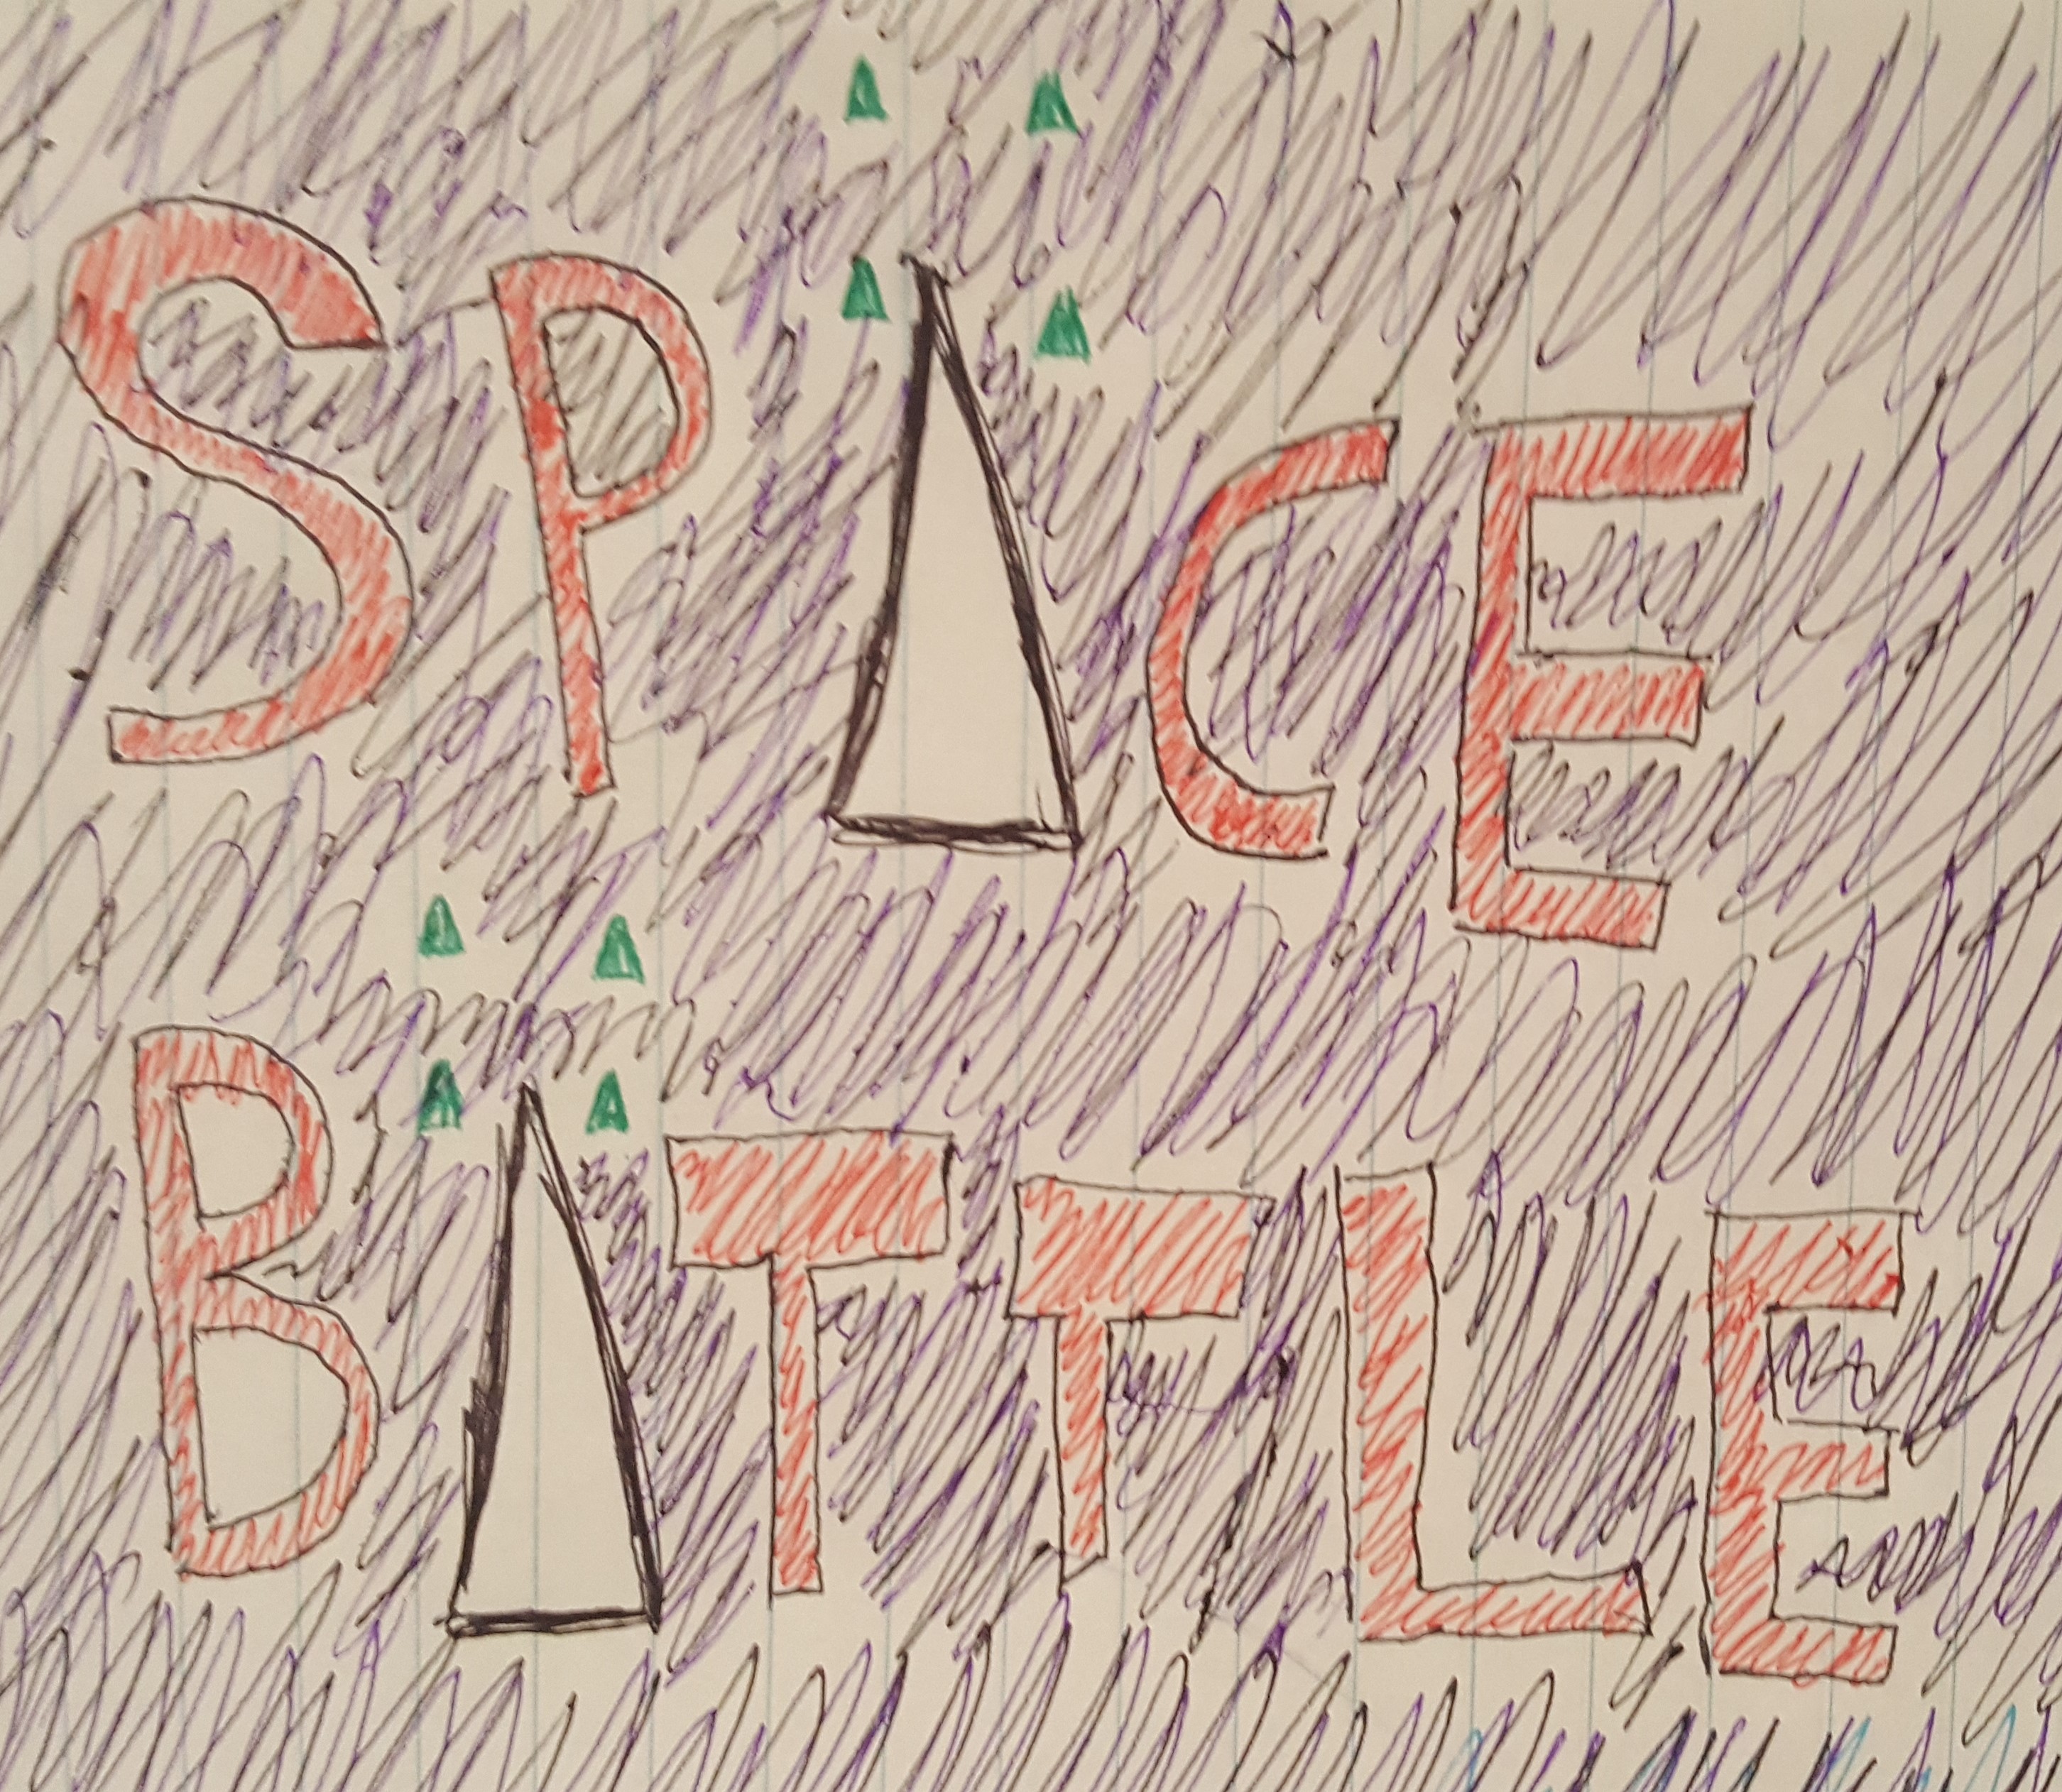 SPACE
BATTLE